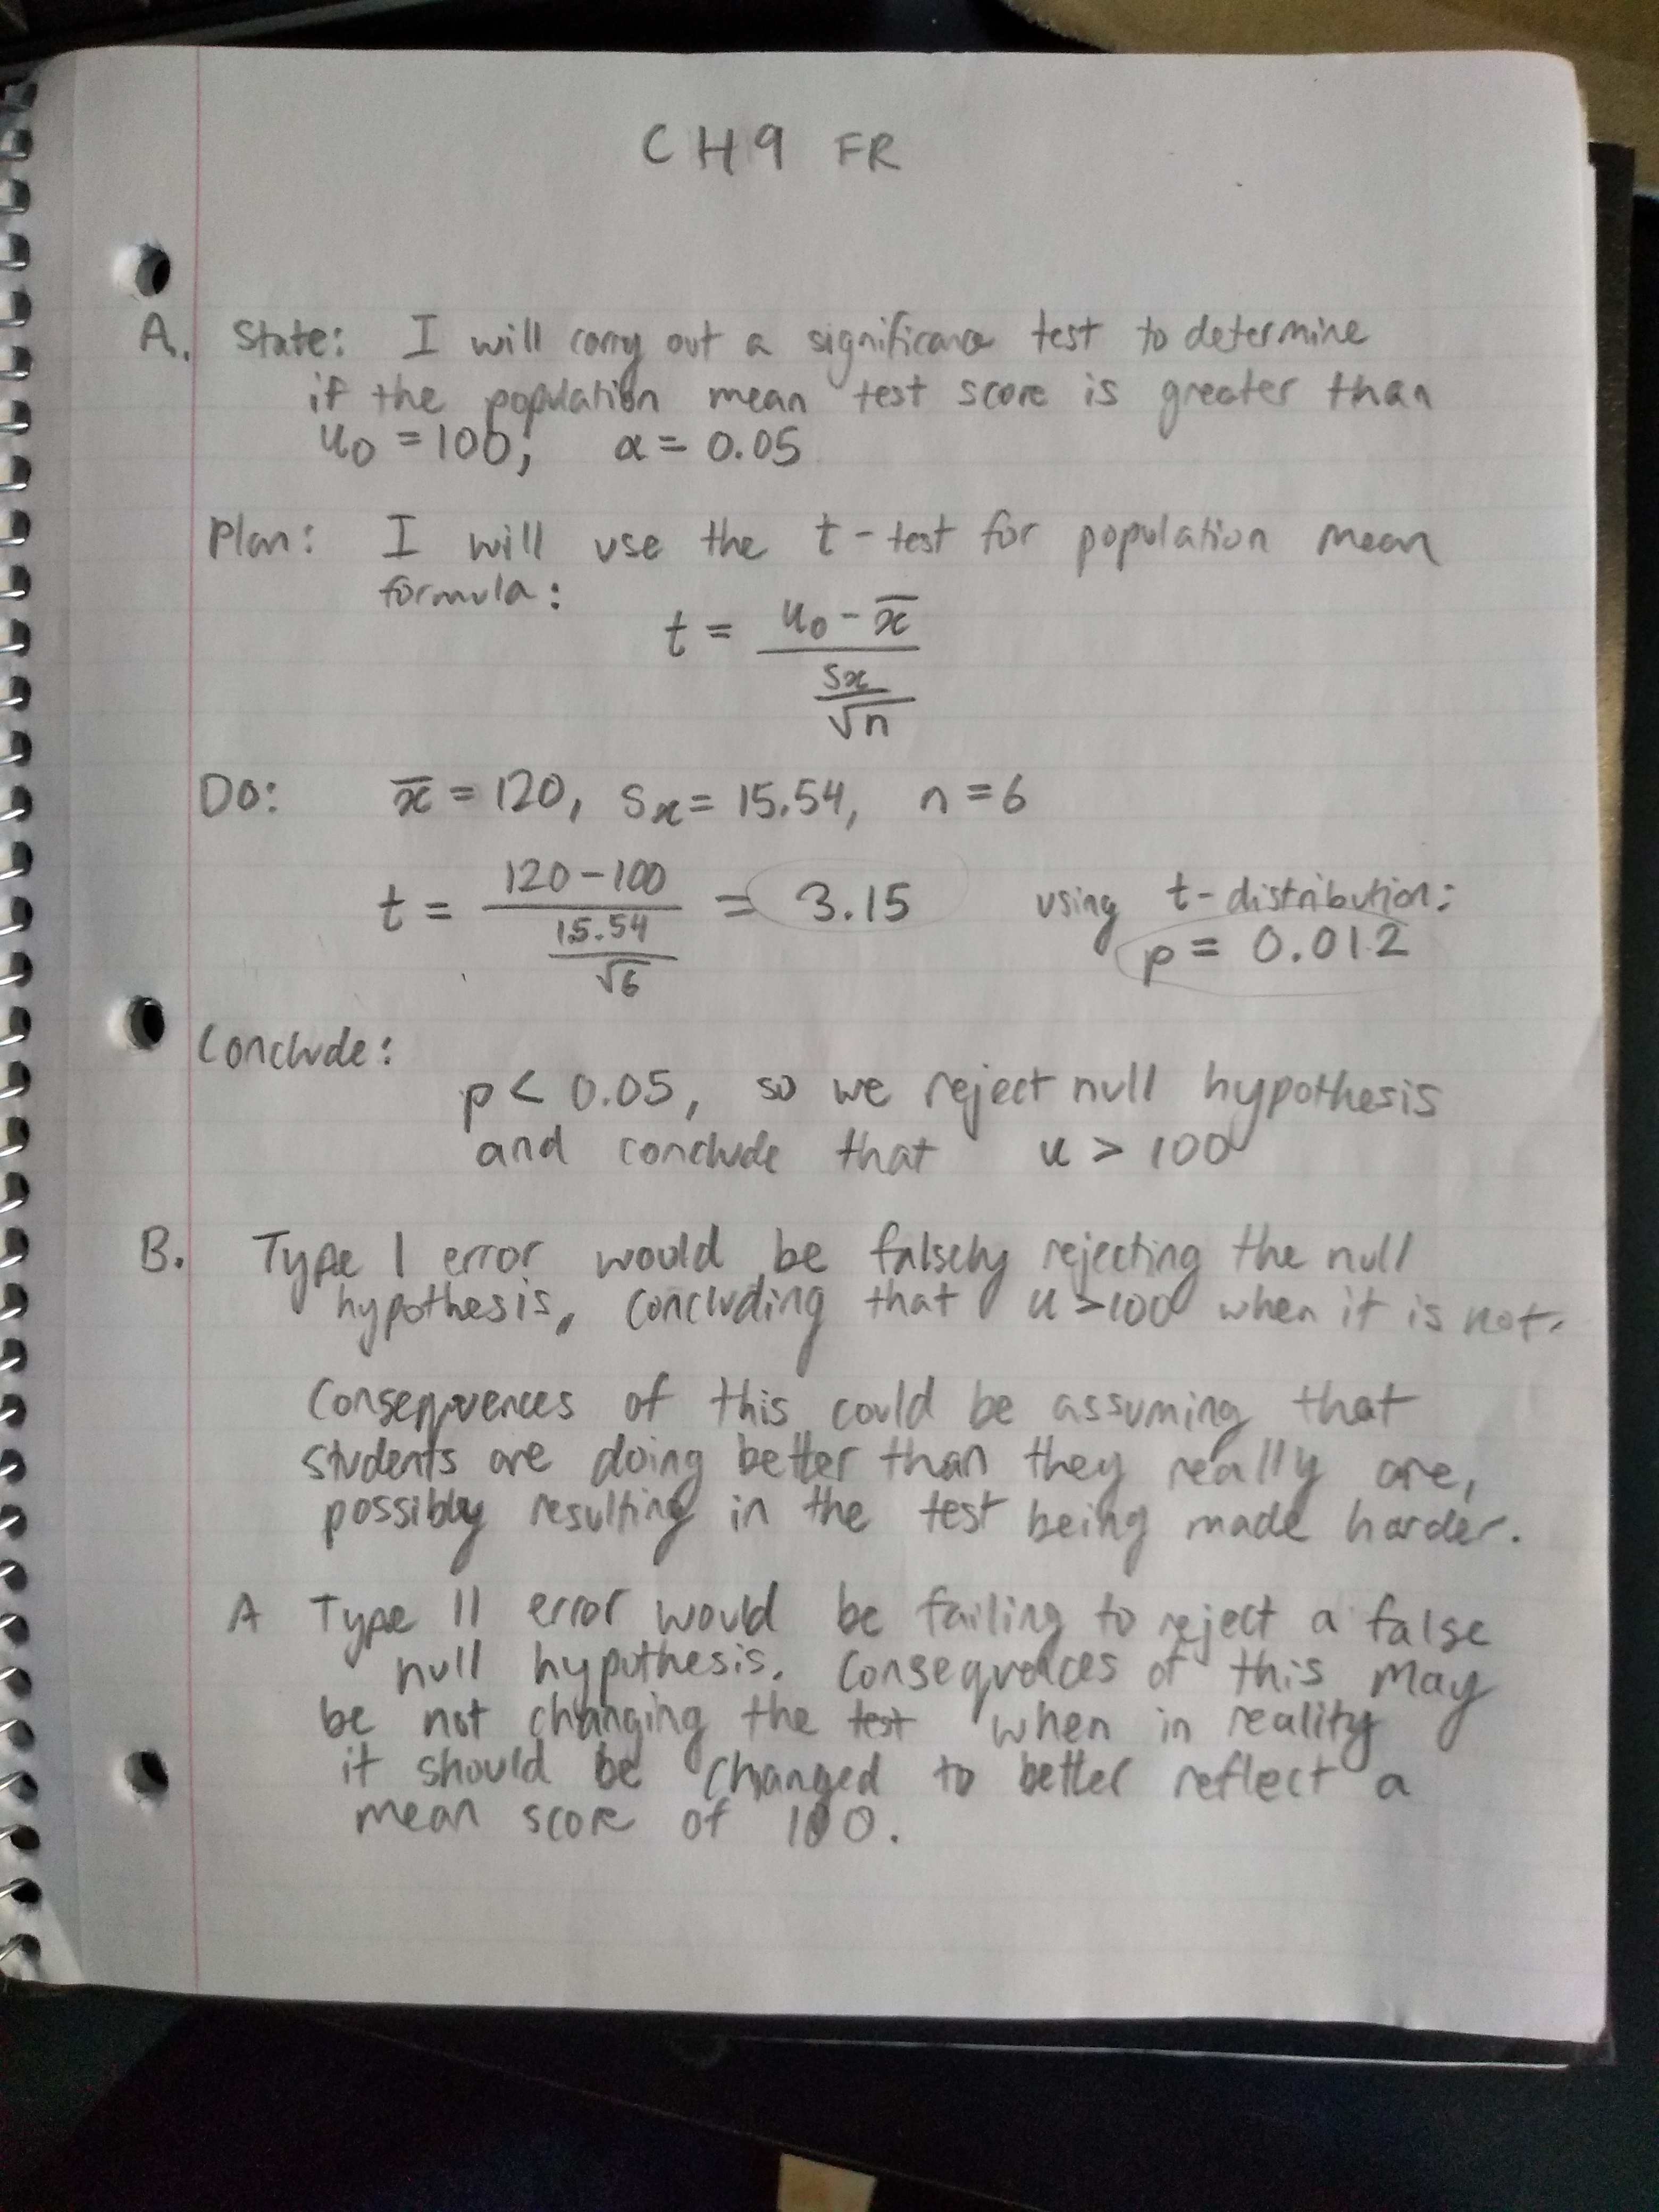 CH9 FR
A. State: I will carry out a significance test to determine
if the population mean test score is greater than
u₀ = 100, α = 0.05
Plan: I will use the t-test for population mean
formula:
t = u₀ - x̄
sx
√n
Do: x̄ = 120, Sx = 15.54, n = 6
t = 120-100 / (15.54 / √6) = 3.15 using t-distribution:
p = 0.012
Conclude:
p < 0.05, so we reject null hypothesis
and conclude that u > 100
B. Type I error would be falsely rejecting the null
hypothesis, concluding that u >100 when it is not.
Consequences of this could be assuming that
students are doing better than they really are,
possibly resulting in the test being made harder.
A Type II error would be failing to reject a false
null hypothesis. Consequences of this may
be not changing the test when in reality
it should be changed to better reflect a
mean score of 100.